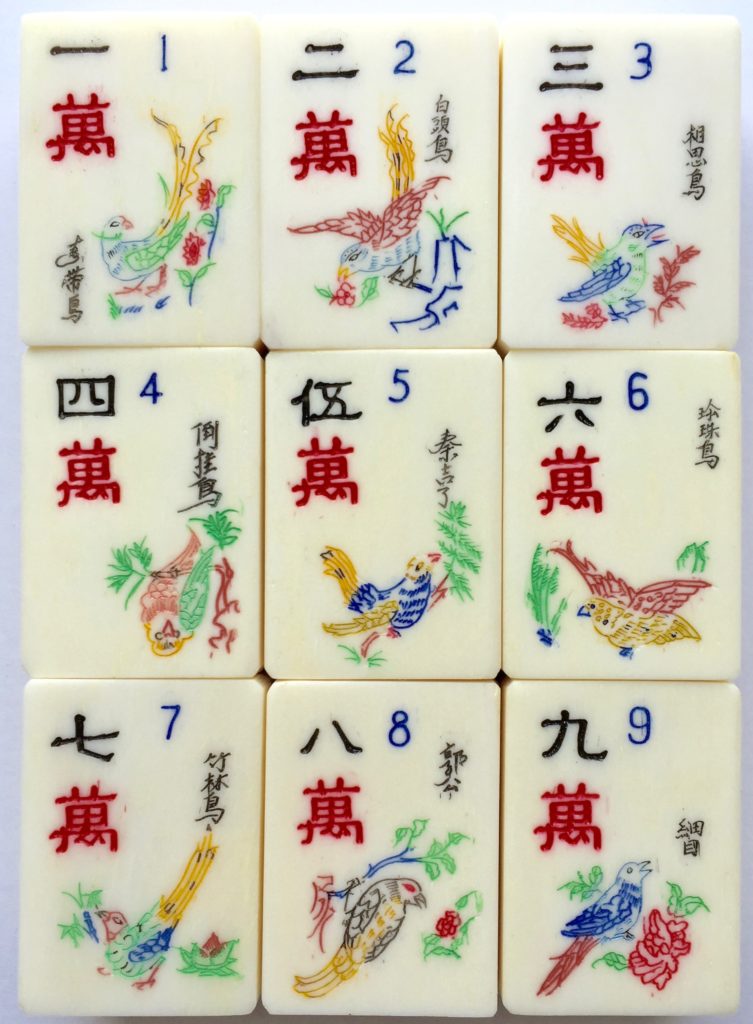 一 1
萬
寿帶鳥
二 2
萬
白頭鳥
三 3
萬
相思鳥
四 4
萬
倒挂鳥
伍 5
萬
秦吉了
六 6
萬
珍珠鳥
七 7
萬
竹林鳥
八 8
萬
郭公
九 9
萬
細目